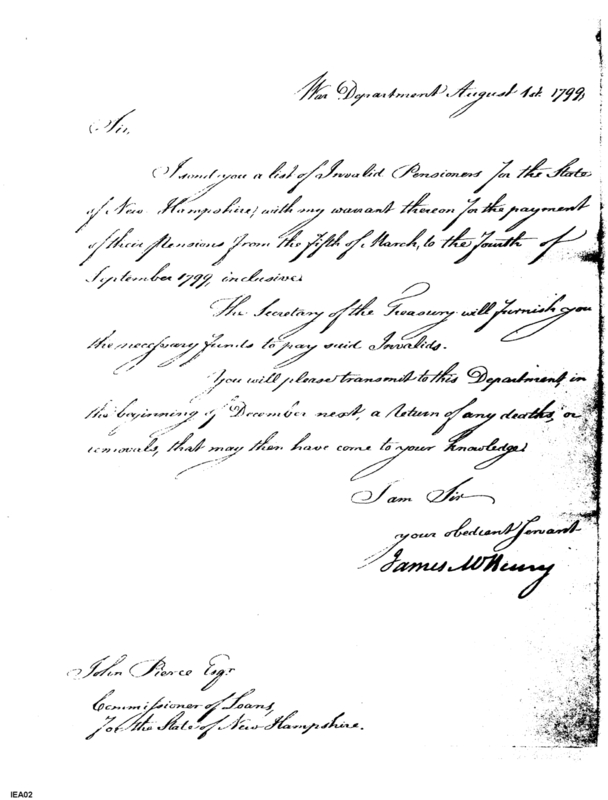 War Department August 1st. 1799,
Sir,
I send you a list of Invalid Pensioners for the State
of New Hampshire, with my warrant thereon for the payment
of their pensions from the fifth of March, to the fourth of
September 1799, inclusive.
The Secretary of the Treasury will furnish you
the necessary funds to pay said Invalids.
You will please transmit to this Department, in
the beginning of December next, a return of any deaths, or
removals, that may then have come to your knowledge.
I am Sir
your obedient servant
James McHenry
John Pierce Esqr.
Commissioner of Loans,
for the State of New Hampshire.
IEA02